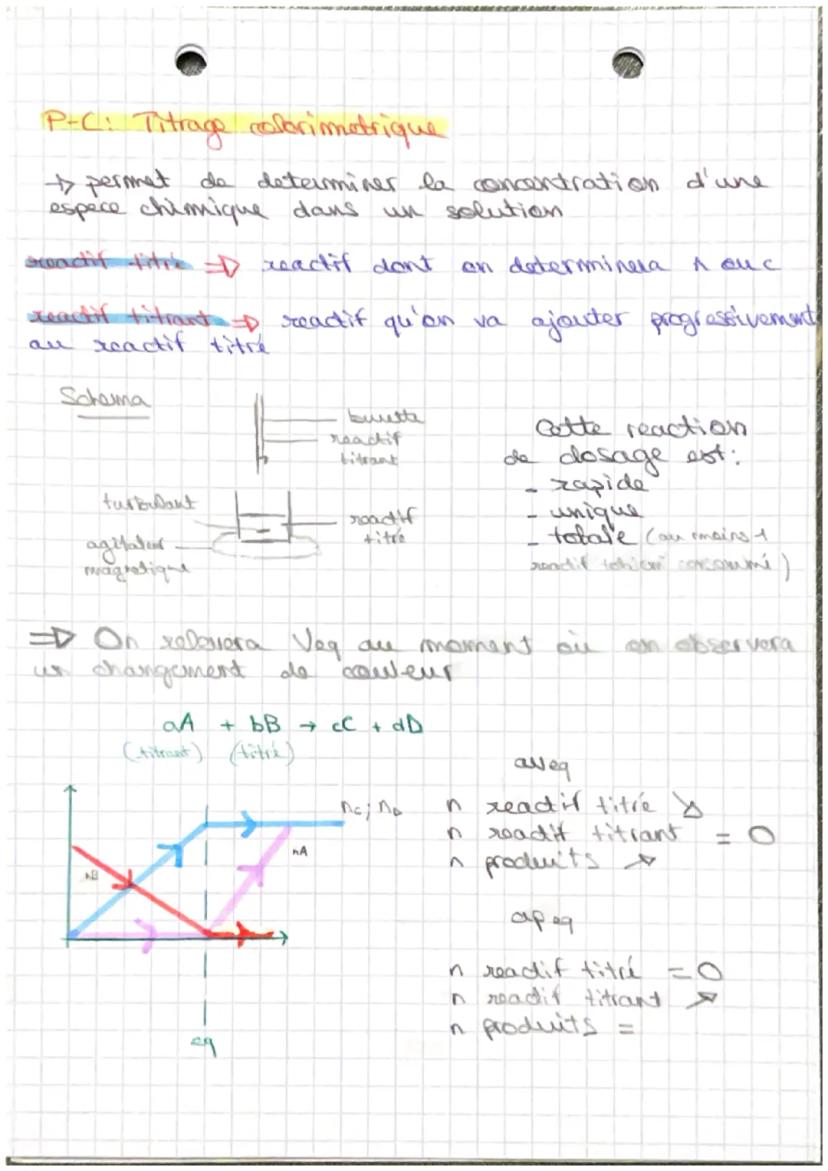 P-C: Titrage colorimetrique
↳ permet de determiner la concentration d'une
espece chimique dans un solution
reactif titré ⇒ reactif dont on determinera n ou c
reactif titrant ⇒ reactif qu'on va ajouter progressivement
au reactif titré
Schema
burette
reactif
titrant
turbulant
agitateur
magnetique
reactif
titré
Cette reaction
de dosage est:
- rapide
- unique
- totale (au moins 1
reactif consommé)
⇒ On relevera Veq au moment où on observera
un changement de couleur
aA + bB → cC + dD
(titrant) (titré)
nC; nD
nA
nB
eq
av eq
n reactif titré ↘
n reactif titrant = 0
n produits ↗
ap eq
n reactif titré = 0
n reactif titrant ↗
n produits =